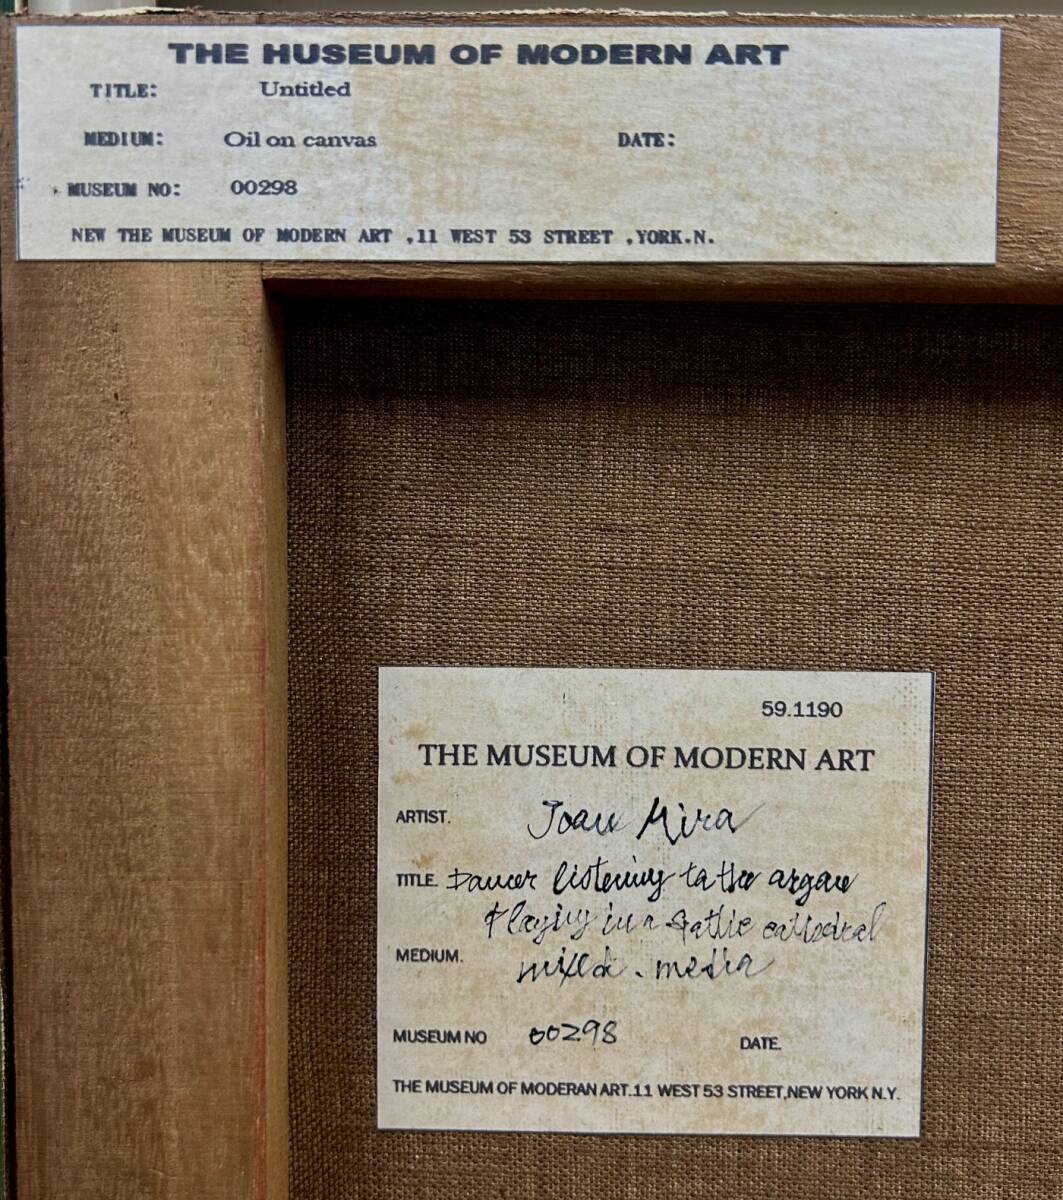 THE HUSEUM OF MODERN ART
TITLE: Untitled
MEDIUM: Oil on canvas DATE:
MUSEUM NO: 00298
NEW THE MUSEUM OF MODERN ART ,11 WEST 53 STREET ,YORK.N.
59.1190
THE MUSEUM OF MODERN ART
ARTIST. Joan Mira
TITLE. Dancer listening to the argan
Playing in a gathic cathedral
MEDIUM. mixed. media
MUSEUM NO 00298 DATE.
THE MUSEUM OF MODERAN ART.11 WEST 53 STREET,NEW YORK N.Y.